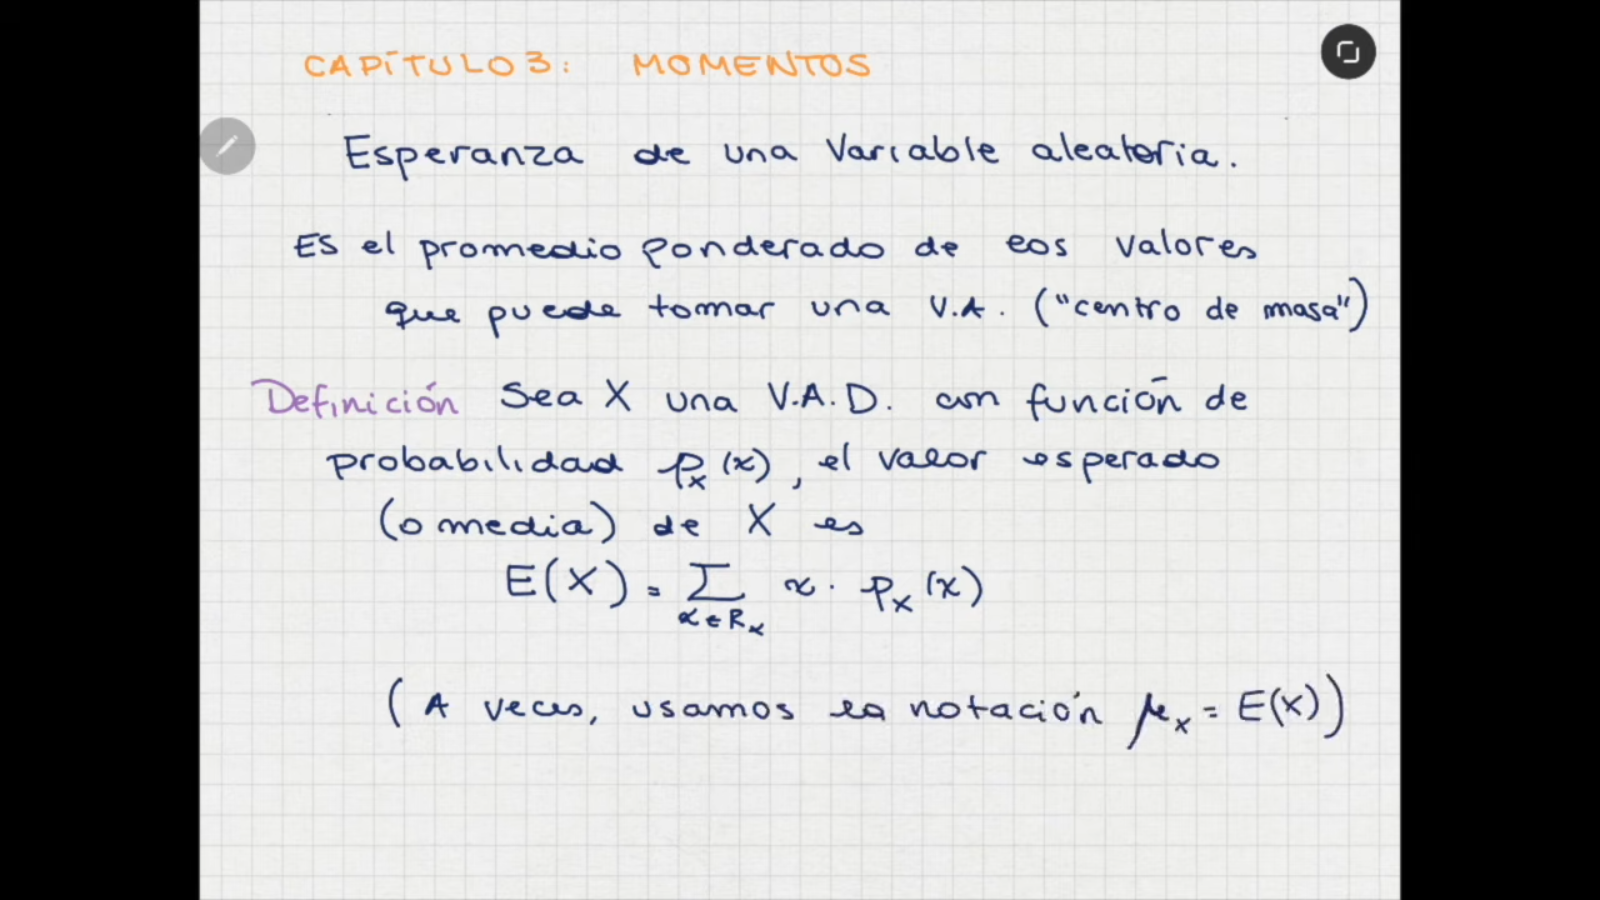 CAPÍTULO 3: MOMENTOS
Esperanza de una Variable aleatoria.
Es el promedio ponderado de los valores
que puede tomar una V.A. ("centro de masa")
Definición Sea X una V.A.D. con función de
probabilidad p_X(x), el valor esperado
(o media) de X es
E(X) = Σ_{x∈R_X} x · p_X(x)
(A veces, usamos la notación μ_X = E(X))